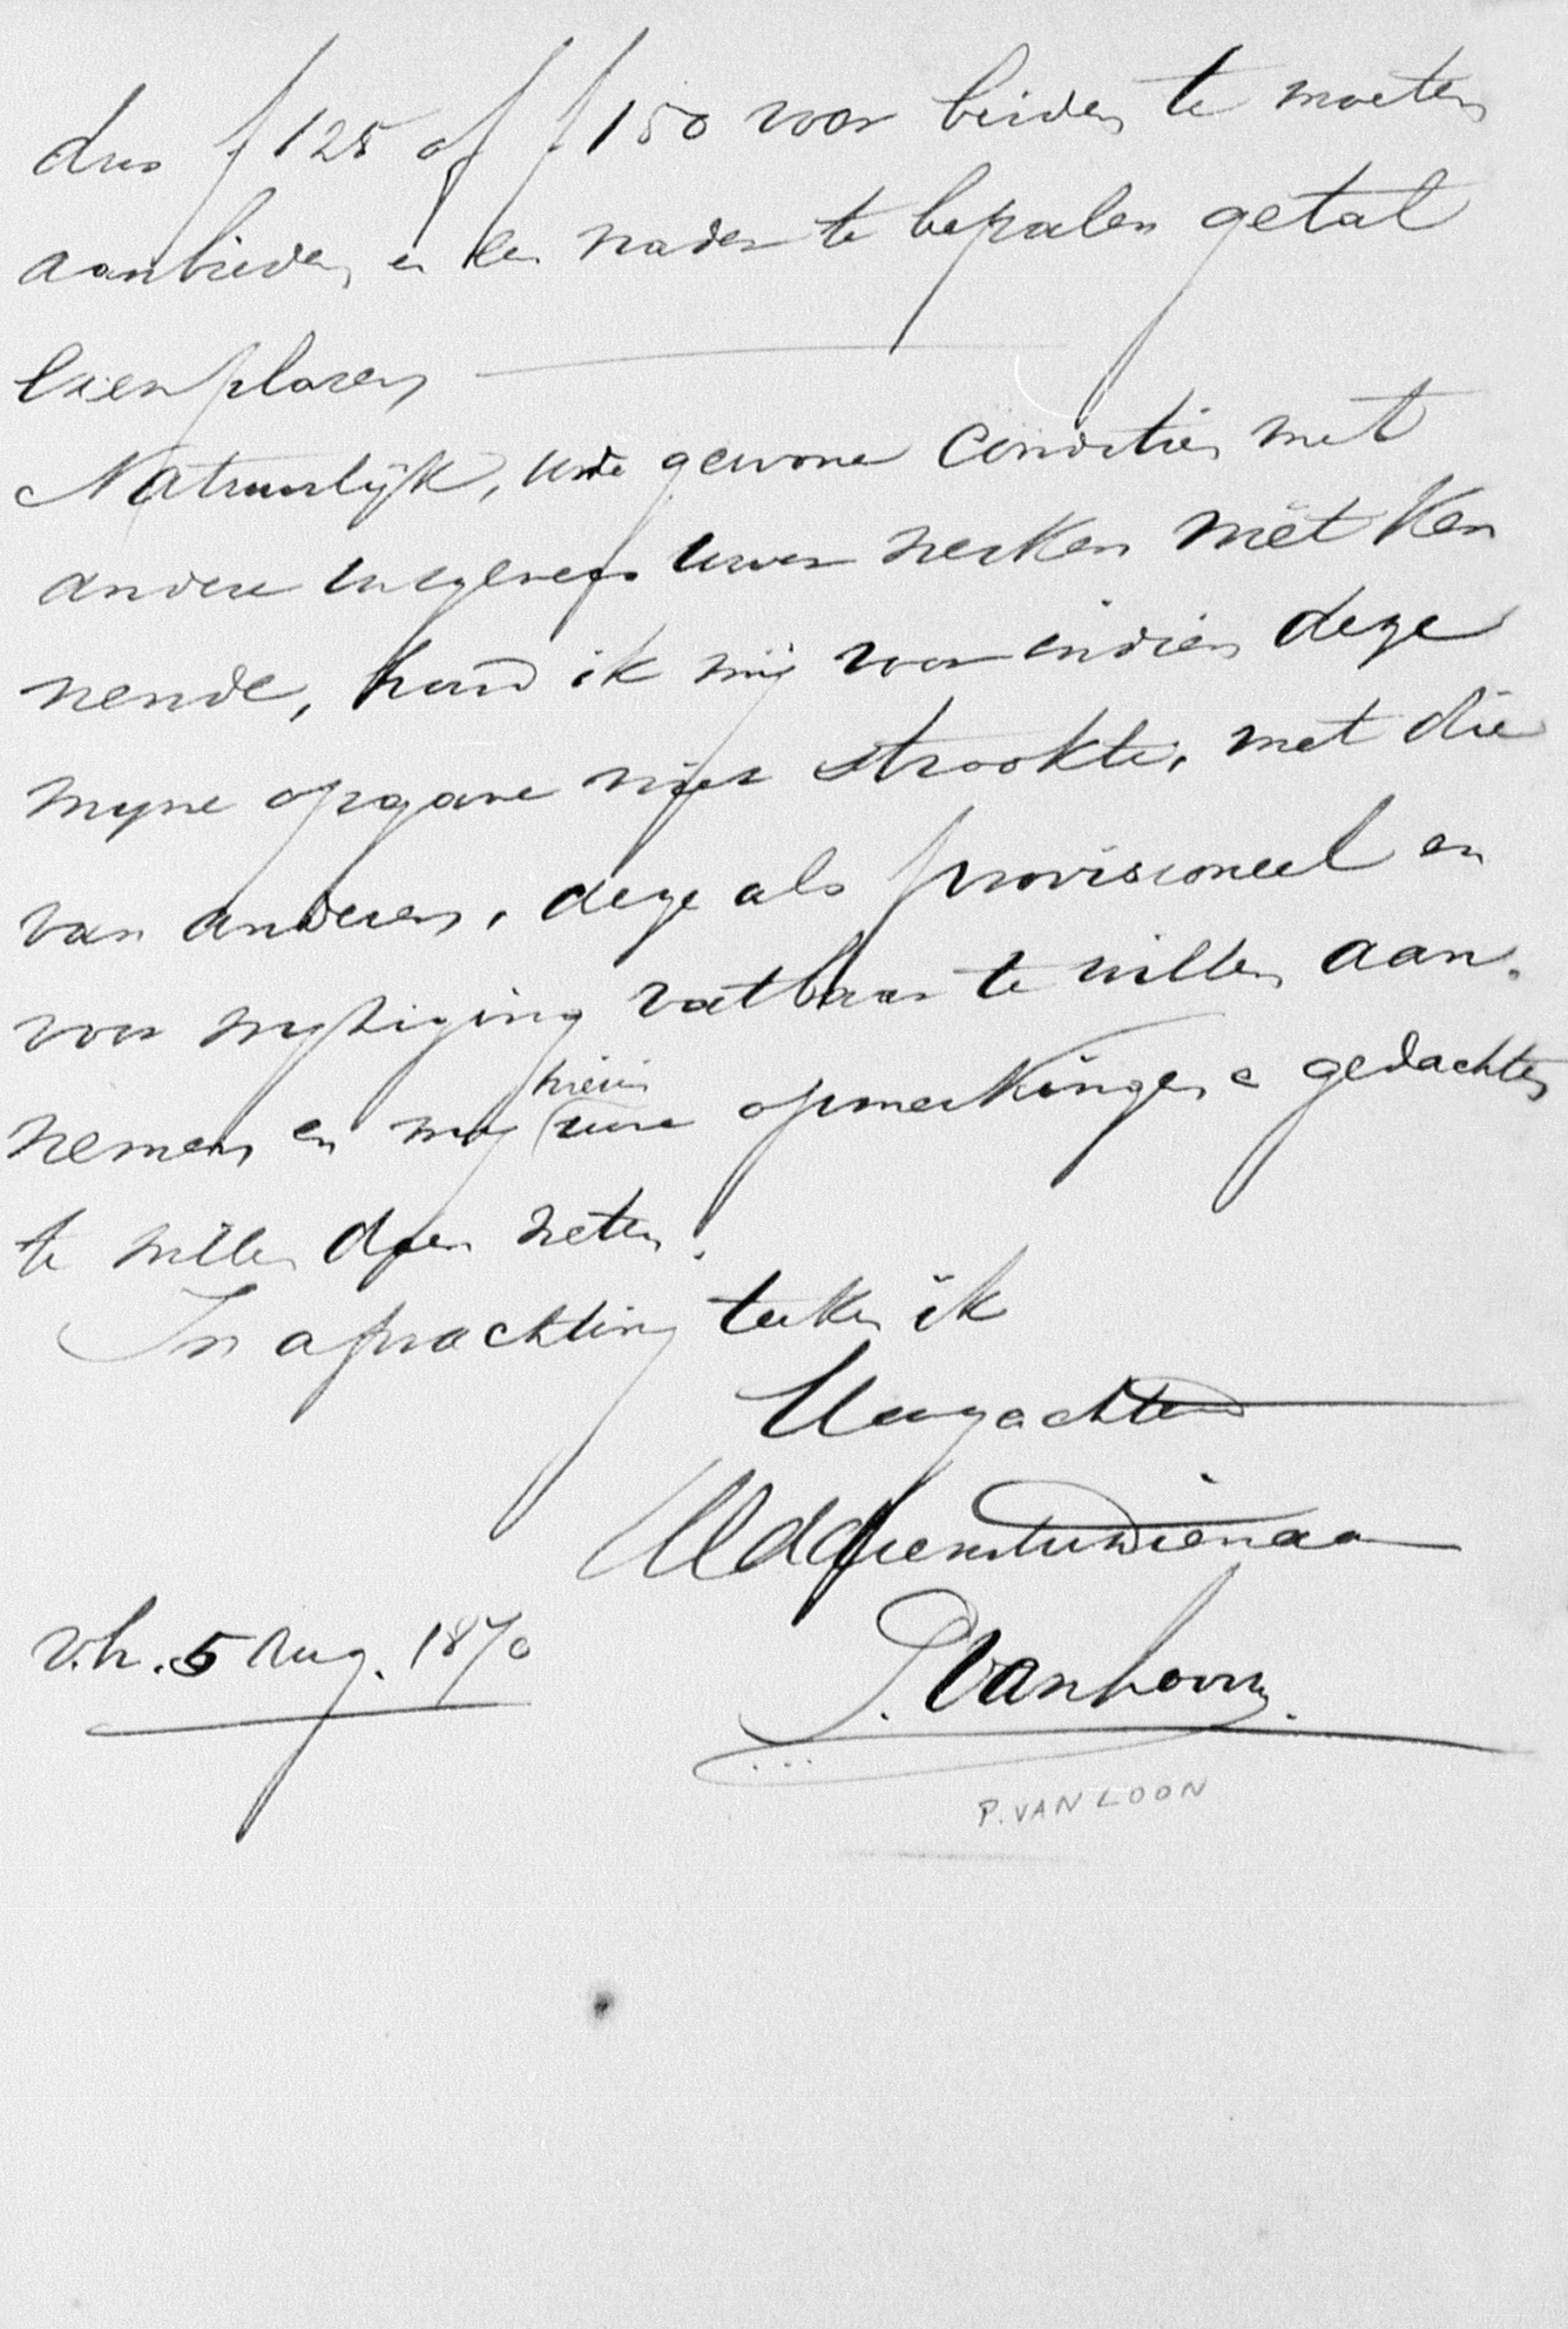 dus f 125 of f 150 voor beiden te moeten
aanbieden, en een nader te bepalen getal
Exemplaren
Natuurlijk, uwe gewone Condities met
andere uitgevers uwer werken niet ken
nende, houd ik mij voor indien deze
mijne opgave niet strookte, met die
van anderen, deze als provisioneel en
voor wijziging vatbaar te willen aan-
nemen en mij hierin uwe opmerkingen & gedachten
te willen doen weten.
In afwachting teeken ik
Hoogachtend
UEd dienstw dienaar
P. Van Loon.
5 Aug. 1870
P. VAN LOON